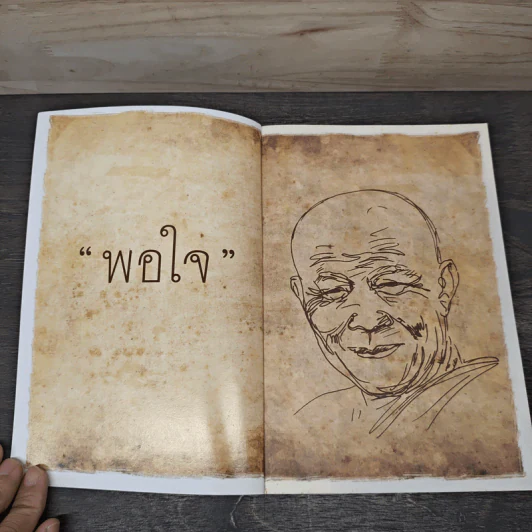 “ พอใจ ”